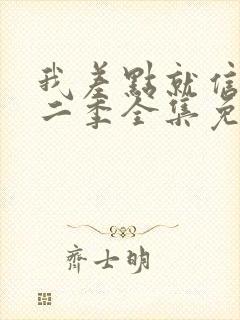 我差點就信
二季全集免
齊士明